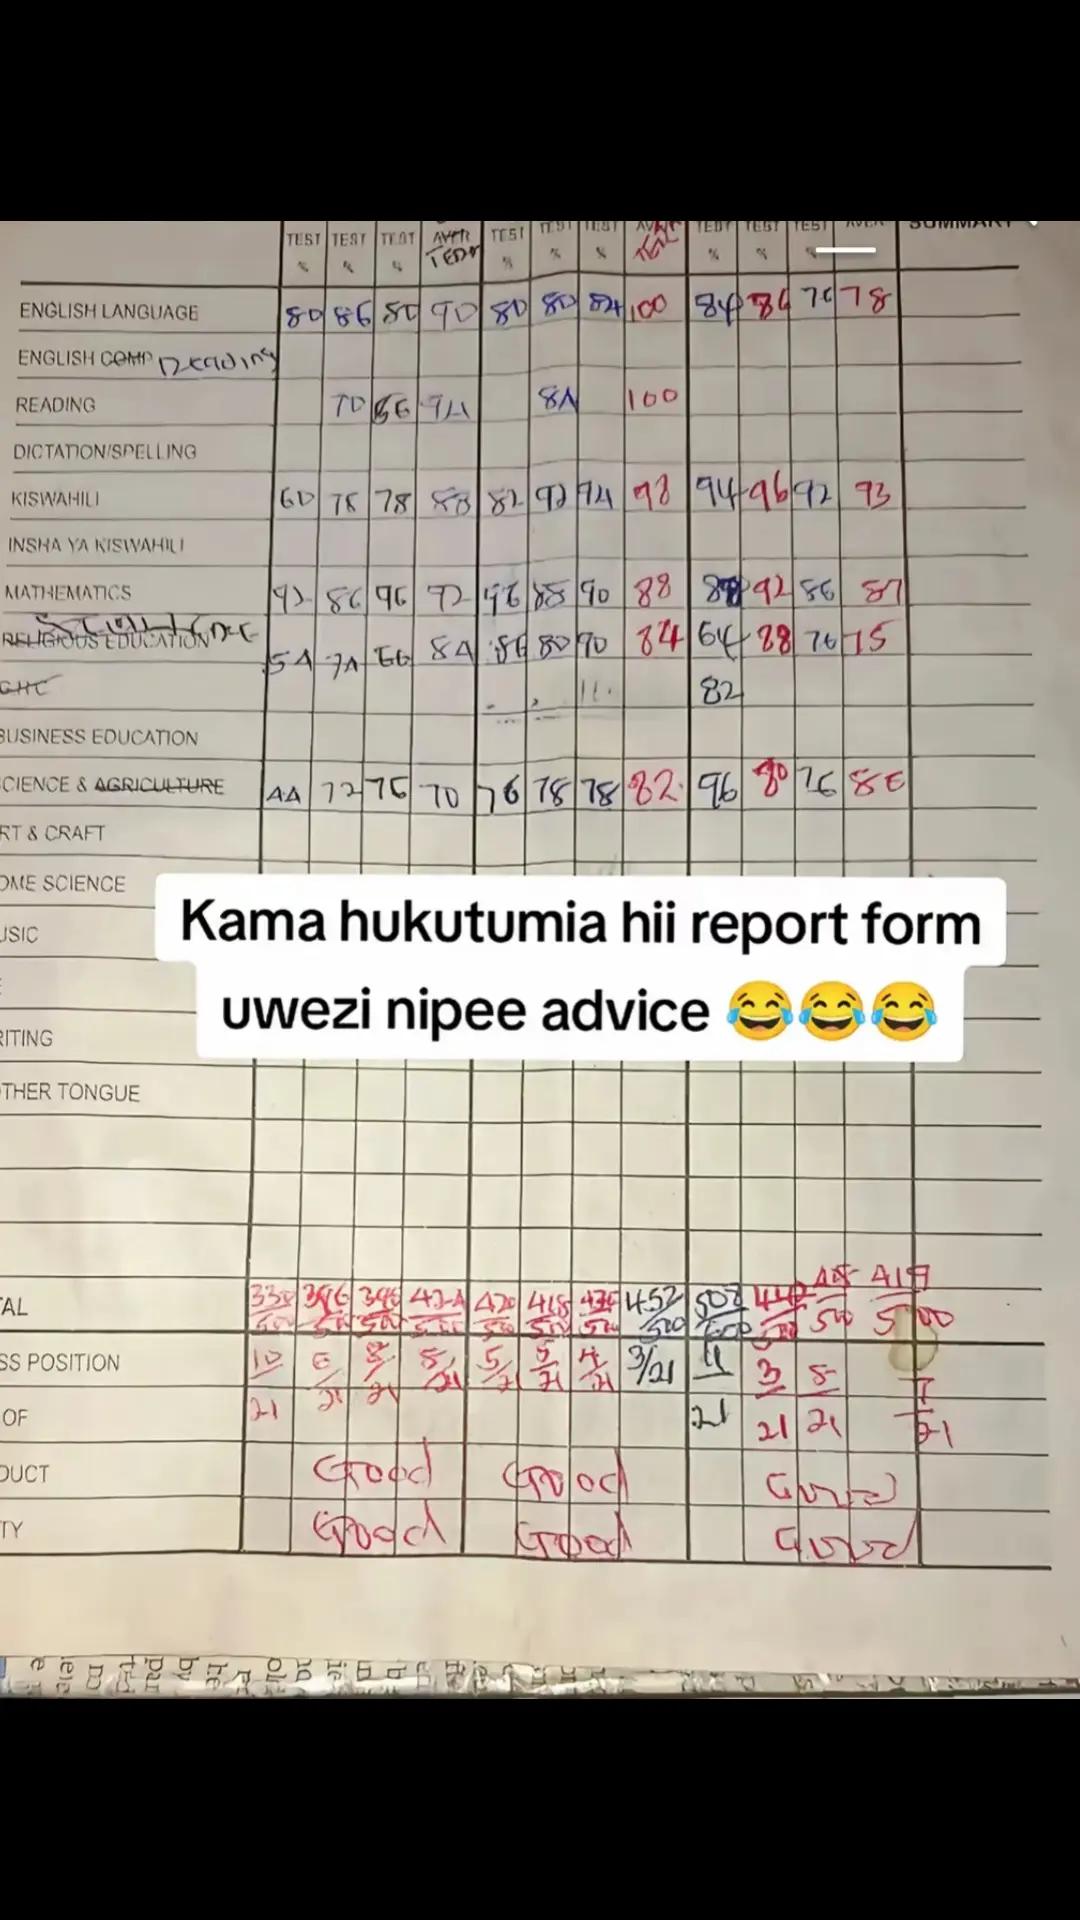 TEST TEST TEST AVER TEST TEST TEST TEST TEST TEST AVER SUMMARY
% % % % % % % % %
ENGLISH LANGUAGE 80 86 80 90 80 80 84 100 84 86 76 78
ENGLISH COMP Reading
READING 70 66 94 84 100
DICTATION/SPELLING
KISWAHILI 60 78 78 88 82 92 94 98 94 96 92 93
INSHA YA KISWAHILI
MATHEMATICS 92 86 96 92 96 88 90 88 92 86 87
RELIGIOUS EDUCATION 54 74 66 84 86 80 90 84 64 88 76 75
GHC 82
BUSINESS EDUCATION
CIENCE & AGRICULTURE 44 72 76 70 76 78 78 82 96 80 76 86
RT & CRAFT
OME SCIENCE
Kama hukutumia hii report form
USIC
uwezi nipee advice 😂😂😂
RITING
OTHER TONGUE
TAL 424 420 418 452 508 419
500 500 500 500 600 500 500 500
SS POSITION 10 6 5 5 4 3/21 3 8 7
OF 21 21 21 21 21 21 21 21 21 21
DUCT Good Good Good
TY Good Good Good